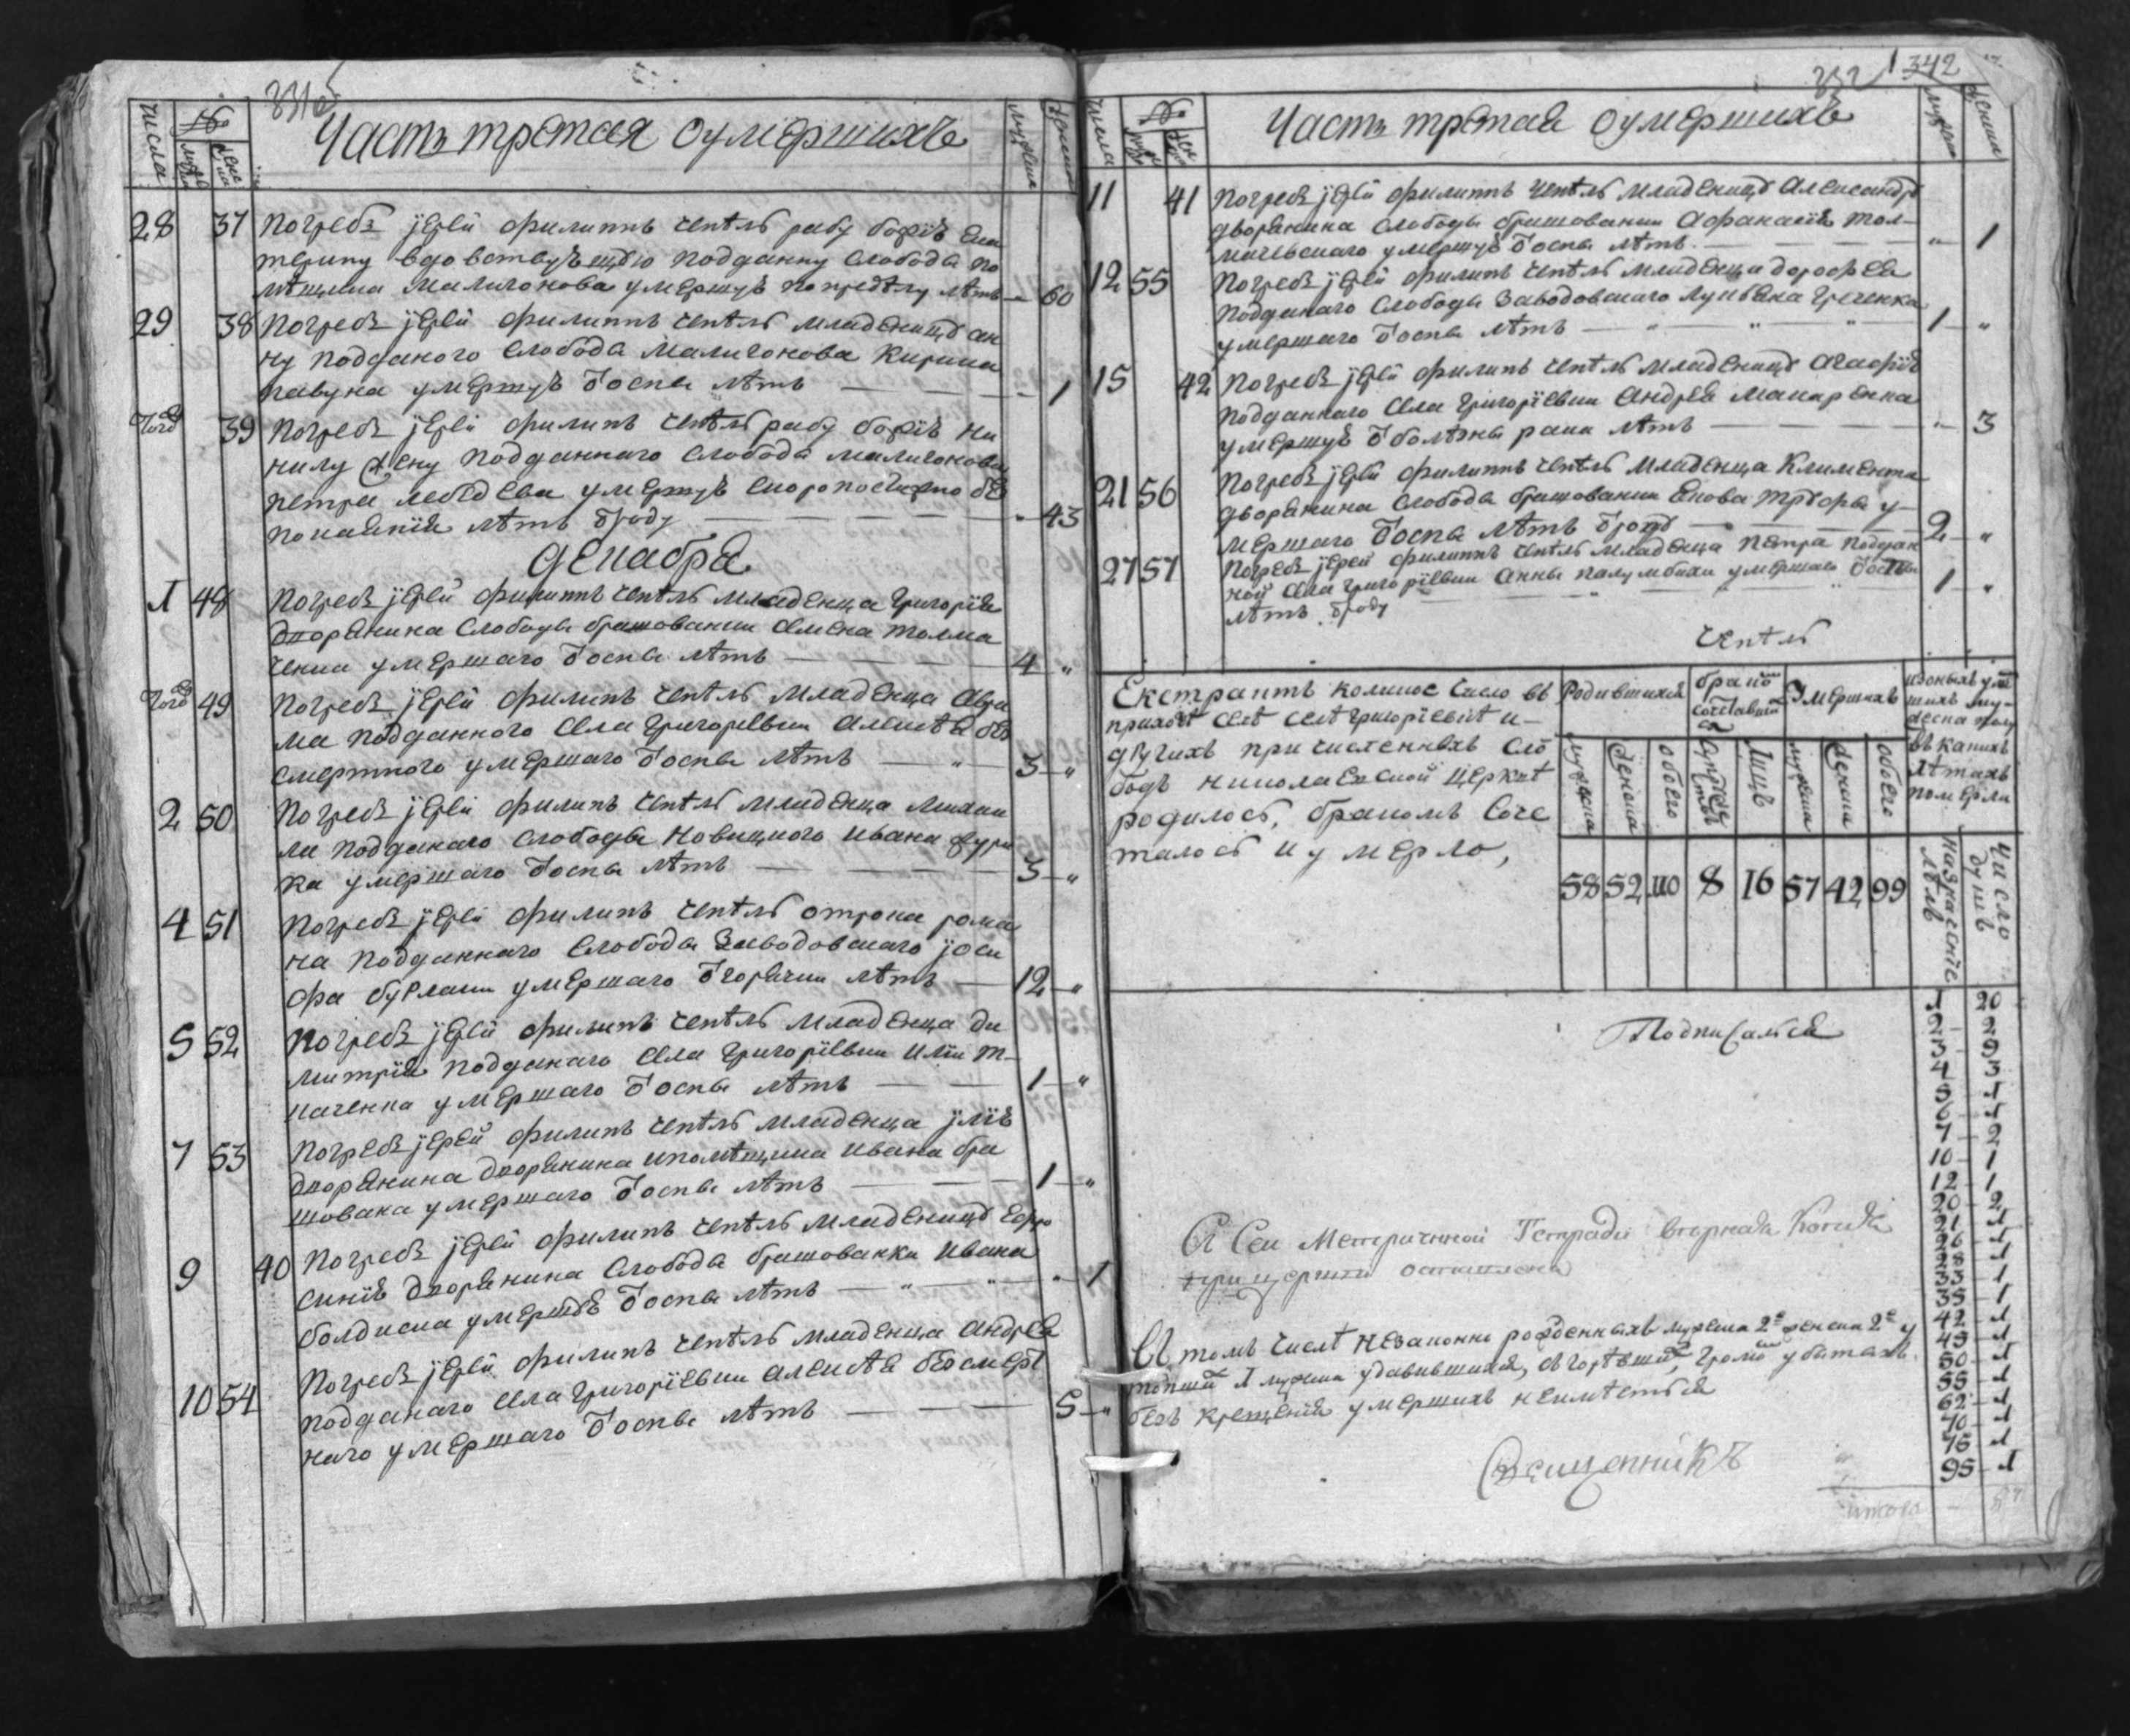 числа
№
мужеска
женска
Часть третая оумершихъ
мужеска
женска
28 37 Погребъ іерей Филиппъ Чепѣль рабу божію Ека
терину вдовствующую подданну слободы по
мѣщика Маличонова умершую по пределу лѣтъ — 60
29 38 Погребъ іерей Филиппъ Чепѣль младеницу ан
ну подданого слободы Маличонова Кирила
павука умершую ѿоспы лѣтъ — 1
Тогѡ 39 Погребъ іерей Филипъ Чепѣль рабу божію Не
нилу жену подданнаго слободы Маличонова
петра лебедева умершую скоропостижно без
покаянія лѣтъ ѿроду — 43
декабря
1 48 Погребъ іерей Филиппъ Чепѣль младенца Григорія
дворянина слободы брашованки семена толма
ченка умершаго ѿоспы лѣтъ — 4 „
Тогѡ 49 Погребъ іерей Филипъ Чепѣль младенца Авра
ма подданного села Григорієвки алексѣя без
смертного умершаго ѿоспы лѣтъ — 3 „
2 50 Погребъ іерей Филипъ Чепѣль младенца михаи
ла подданаго слободы Новицкого ивана
ка умершаго ѿоспы лѣтъ — 3 „
4 51 Погребъ іерей Филипъ Чепѣль отрока рома
на подданнаго слободы Заводовскаго іоси
фа бурлаки умершаго ѿгорячки лѣтъ — 12 „
5 52 Погребъ іерей Филипъ Чепѣль младенца ди
митрія подданаго села Григорієвки иліи т
каченка умершаго ѿоспы лѣтъ — 1 „
7 53 Погребъ іерей Филипъ Чепѣль младенца іулія
дворянина дворянина ипомѣщика ивана бра
шована умершаго ѿоспы лѣтъ — 1 „
9 40 Погребъ іерей Филипъ Чепѣль младеницу Евфро
синію дворянина слободы брашованки ивана
болдиска умершую ѿоспы лѣтъ — „ — „ — 1
10 54 Погребъ іерей Филипъ Чепѣль младенца андрея
подданаго села Григорієвки алексѣя безсмерт
наго умершаго ѿоспы лѣтъ — 5 „
342
числа
№
Часть третая оумершихъ
женска
11 41 Погребъ іерей Филиппъ Чепѣль младеницу александру
дворянина слободы брашованки Афанасія тол-
мачевскаго умершую ѿоспы лѣтъ — „ 1
12 55 Погребъ іерей Филипъ Чепѣль младенца дорофея
подданаго слободы Заводовскаго лукьяна Греченка
умершаго ѿоспы лѣтъ — „ — „ — „ 1 — „
15 42 Погребъ іерей Филипъ Чепѣль младеницу агафію
подданнаго села Григорієвки Андрея макаренка
умершую ѿболѣзны рака лѣтъ — „ 3
21 56 Погребъ іерей Филиппъ Чепѣль младенца Климента
дворянина слободы брашованки Якова у-
мершаго ѿоспы лѣтъ ѿроду — 2 „
27 57 Погребъ іерей Филиппъ Чепѣль младенца петра поддан
ной села Григорієвки анны умершаго ѿоспы
лѣтъ ѿроду 1 „
Чепѣль
Екстрактъ коликое число въ
приходѣ селѣ селѣ Григорієвкѣ и
другихъ причисленныхъ сло
бодъ николаевской церквѣ
родилось, бракомъ соче
талось и умерло,
Родившихся
бракомъ
сочетавших
ся
Умершихъ
мужеска
женска
обоего
супружествъ
лицъ
мужеска
женска
обоего
въ какихъ
лѣтахъ
померли
58 52 110 8 16 57 42 99
назначеніе
лѣтъ
число
душъ
1 20
2 2
3 9
4 3
5 1
6 1
7 2
10 1
12 1
20 2
21 1
26 1
28 1
33 1
35 1
42 1
45 1
50 1
55 1
62 1
70 1
75 1
95 1
итого
Подписался
С сеи Метричнои Тетради вторная Копія
при церкви оставлена
Въ томъ числѣ незаконно рожденныхъ мужеска 2е женска 2е у
топшій 1 мужеска удавившихся, згорѣвшихъ, громо убитыхъ
безъ крещенія умершихъ неимѣеться
Священникъ